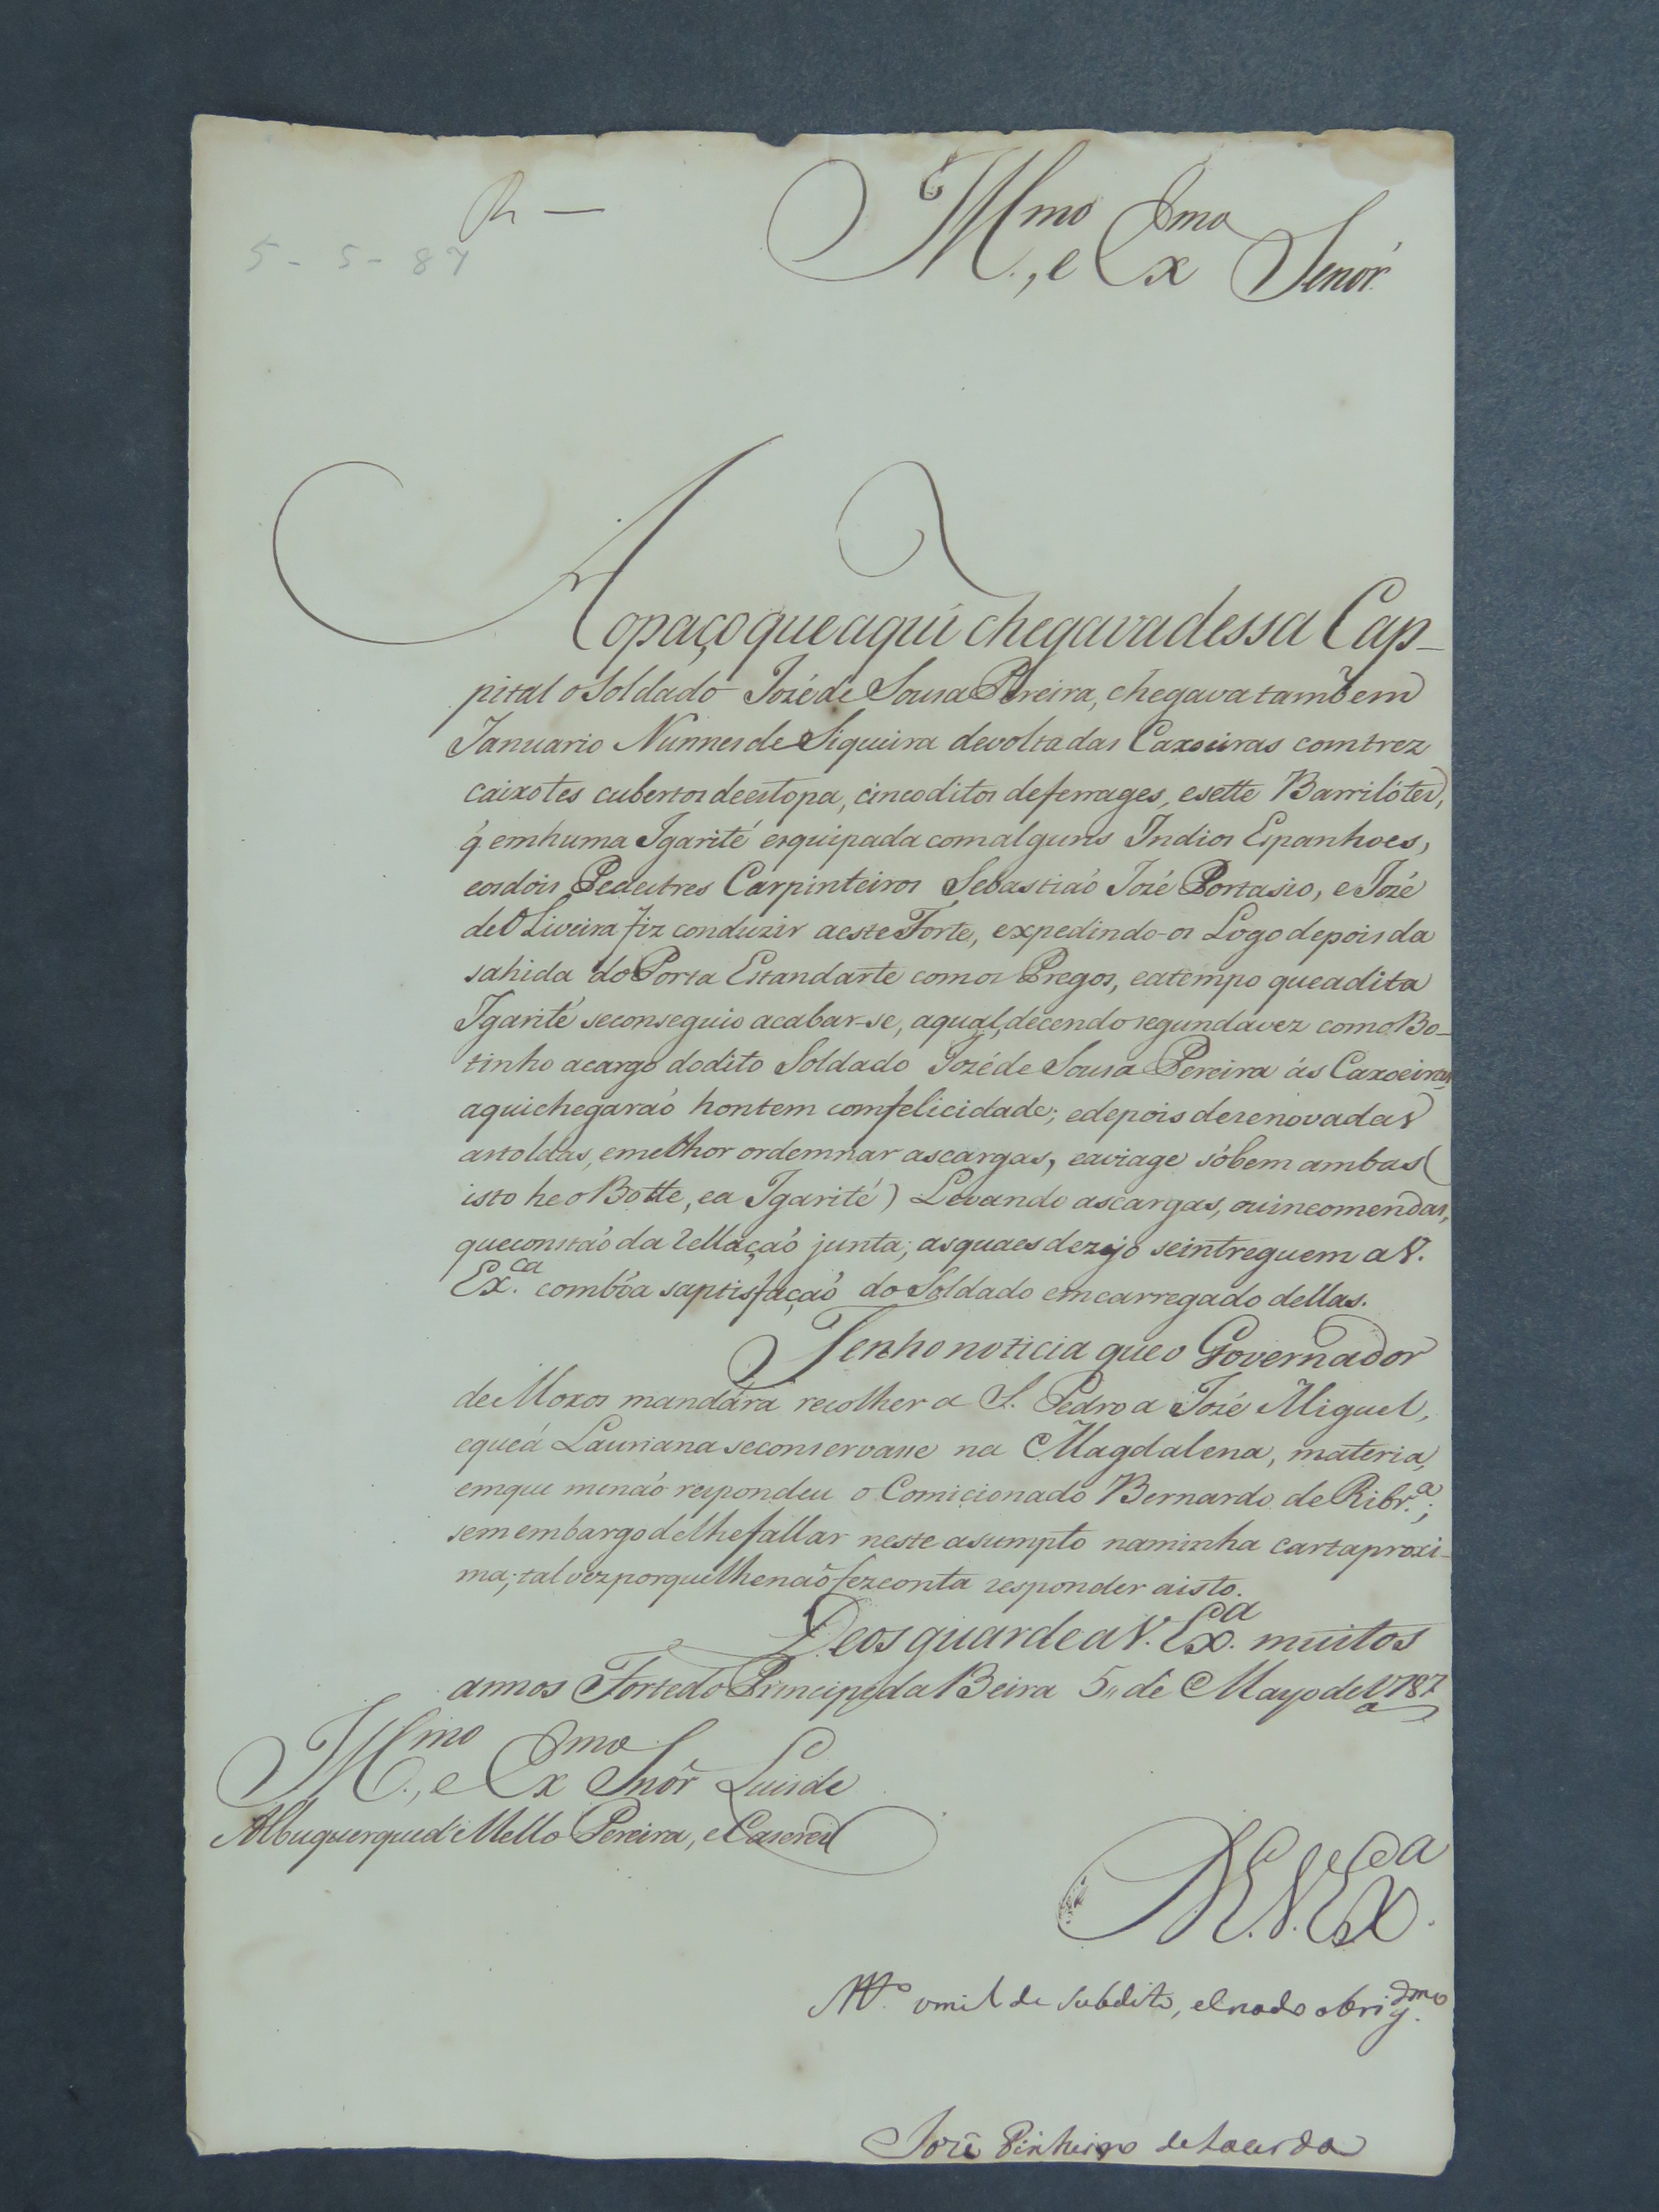 R —
5 - 5 - 87
Ill.mo, e Ex.mo Senór.
Ao paço que aquí chegava dessa Cap-
pital o Soldado Jozé de Sousa Pereira, chegava tambem
Januario Nunnes de Siqueira de volta das Caxoeiras com trez
caixotes cubertos de estopa, cinco ditos de ferrages, e sette Barrilótes,
q̃ em huma Igarité esquipada com alguns Indios Espanhoes,
e os dóis Pedestres Carpinteiros Sebastiaó Jozé Portasio, e Jozé
de OLiveira fiz conduzir a este Forte, expedindo-os Logo depois da
sahida do Porta Estandarte com os Pregos, e a tempo que a dita
Igarité se conseguio acabar-se, a qual, decendo segunda vez com o Bo-
tinho a cargo do dito Soldado Jozé de Sousa Pereira ás Caxoeiras,
aqui chegaraó hontem com felicidade; e depois de renovadas
as toldas, e melhor ordemnar as cargas, e a viage sóbem ambas (
isto he o Botte, e a Igarité) Levando as cargas, ou incomendas,
que constaó da Rellaçaó junta; as quaes dezejo se intreguem a V.
Ex.ca com bôa saptisfaçaó do Soldado emcarregado dellas.
Tenho noticia que o Governador
de Moxos mandára recolher a S. Pedro a Jozé Miguel,
e que á Lauriana se conservasse na Magdalena, materia,
em que me naó respondeu o Comicionado Bernardo de Ribr.a;
sem embargo de lhe fallar neste asumpto na minha carta proxi-
ma; tal vez porque lhe naõ fez conta responder a isto.
Deos guarde a V. Ex.ca muitos
annos Forte do Principe da Beira 5,, de Mayo de 1787
Ill.mo, e Ex.mo Snõr Luis de
Albuquerque d'Mello Pereira, e Caseres
D. V. Ex.ca
M.to umilde subdito, e criado obrig.dmo
Jozé Pinheiro de Lacerda